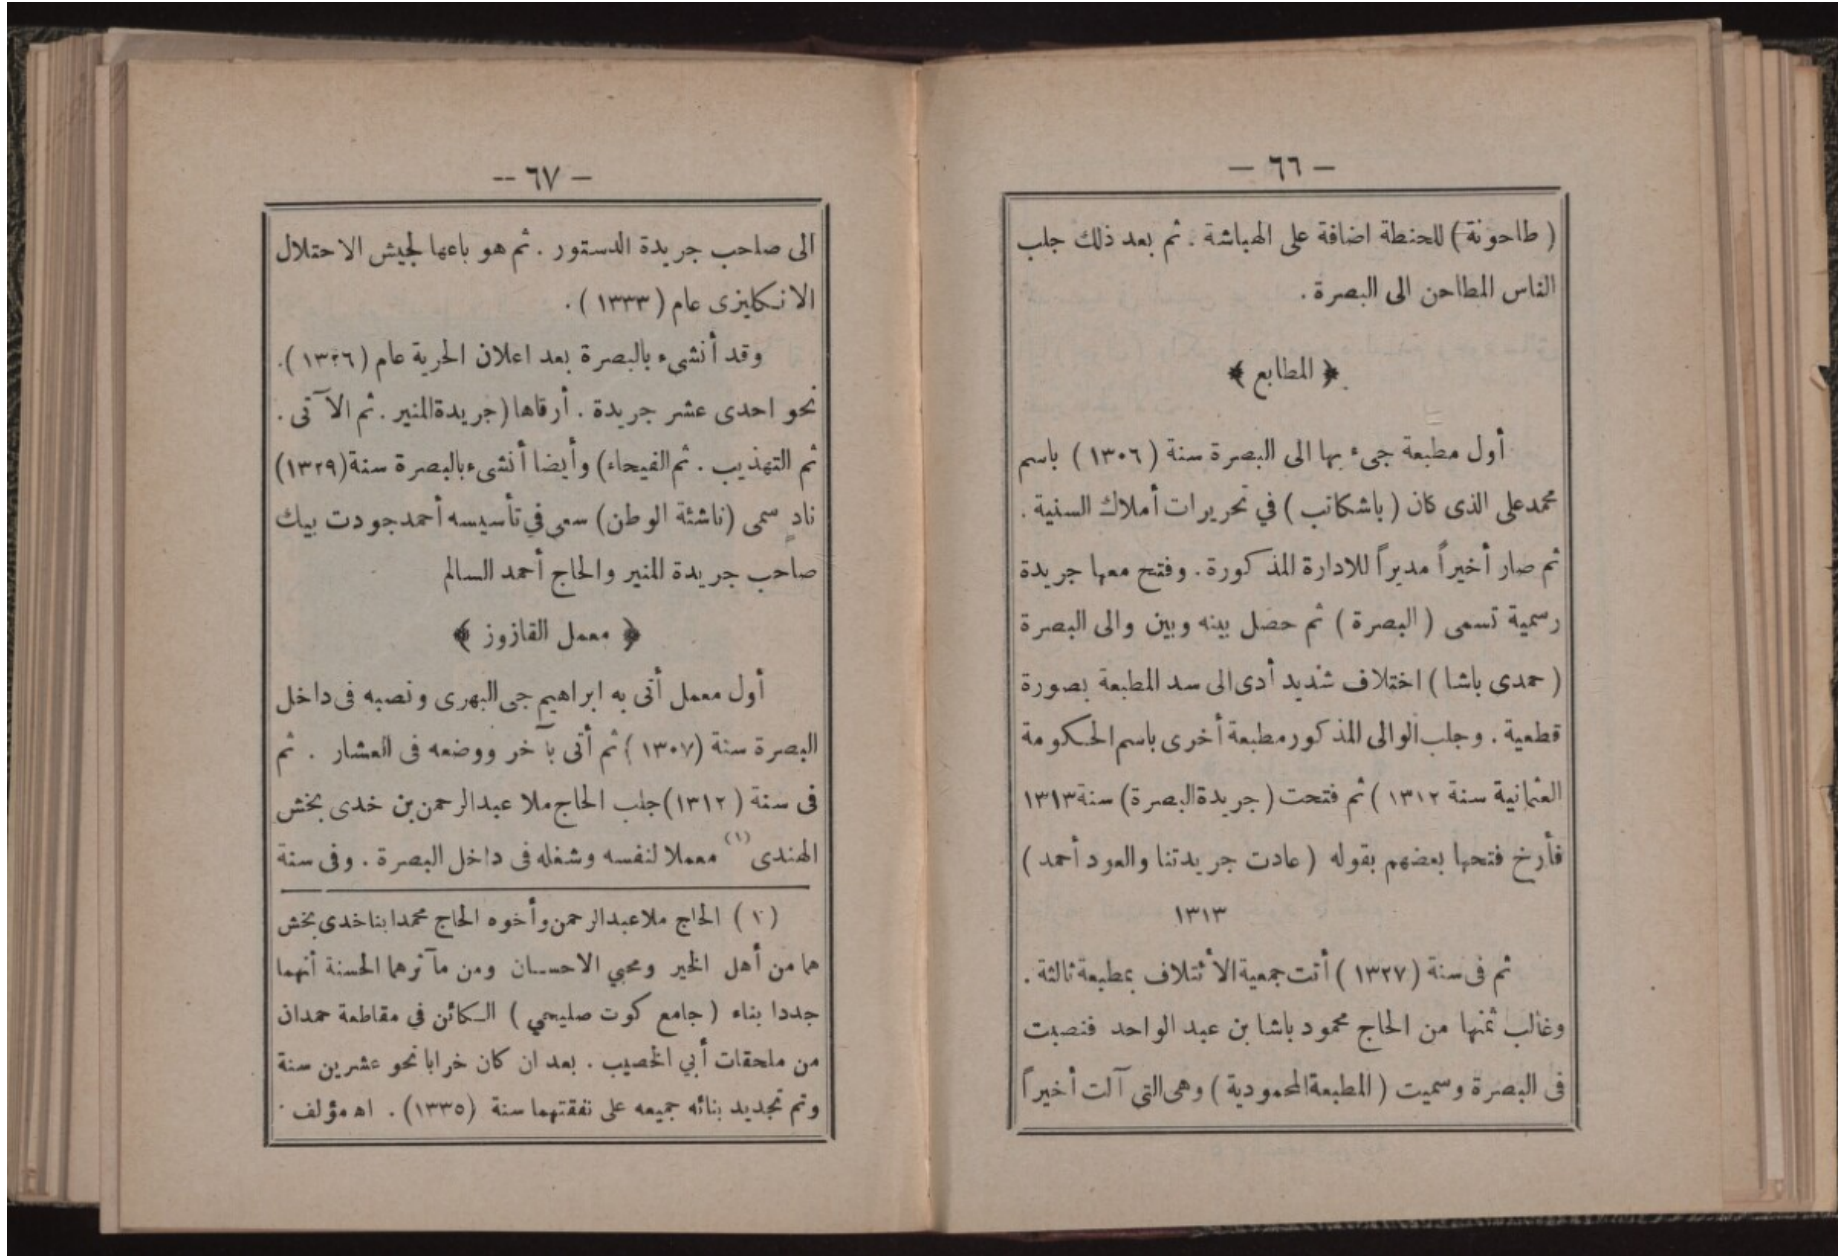 — ٦٦ —
( طاحونة ) للحنطة اضافة على الهباشة . ثم بعد ذلك جلب
الناس المطاحن الى البصرة .
﴿ المطابع ﴾
أول مطبعة جىء بها الى البصرة سنة ( ١٣٠٦ ) باسم
محمد على الذى كان ( باشكاتب ) في تحريرات أملاك السنية .
ثم صار أخيراً مديراً للادارة المذكورة . وفتح معها جريدة
رسمية تسمى ( البصرة ) ثم حصل بينه وبين والى البصرة
( حمدى باشا ) اختلاف شديد أدى الى سد المطبعة بصورة
قطعية . وجلب الوالى المذكور مطبعة أخرى باسم الحكومة
العثمانية سنة ١٣١٢ ) ثم فتحت ( جريدة البصرة ) سنة ١٣١٣
فأرخ فتحها بعضهم بقوله ( عادت جريدتنا والعود أحمد )
١٣١٣
ثم فى سنة ( ١٣٢٧ ) أتت جمعية الأئتلاف بمطبعة ثالثة .
وغالب ثمنها من الحاج محمود باشا بن عبد الواحد فنصبت
فى البصرة وسميت ( المطبعة المحمودية ) وهى التى آلت أخيراً
— ٦٧ --
الى صاحب جريدة الدستور . ثم هو باعها لجيش الاحتلال
الانكليزى عام ( ١٣٣٣ ) .
وقد أنشىء بالبصرة بعد اعلان الحرية عام ( ١٣٢٦ ) .
نحو احدى عشر جريدة . أرقاها ( جريدة المنير . ثم الآتى .
ثم التهذيب . ثم الفيحاء ) وأيضا أنشىء بالبصرة سنة ( ١٣٢٩ )
نادٍ سمى ( ناشئة الوطن ) سعى في تأسيسه أحمد جودت بيك
صاحب جريدة المنير والحاج أحمد السالم
﴿ معمل القازوز ﴾
أول معمل أتى به ابراهيم جى البهرى ونصبه فى داخل
البصرة سنة ( ١٣٠٧ ) ثم أتى بآخر ووضعه فى العشار . ثم
فى سنة ( ١٣١٢ ) جلب الحاج ملا عبدالرحمن بن خدى بخش
الهندى (١) معملا لنفسه وشغله فى داخل البصرة . وفى سنة
( ١ ) الحاج ملا عبدالرحمن وأخوه الحاج محمد ابنا خدى بخش
هما من أهل الخير ومحبي الاحسان ومن مآثرهما الحسنة أنهما
جددا بناء ( جامع كوت صليحي ) الكائن في مقاطعة حمدان
من ملحقات أبي الخصيب . بعد ان كان خرابا نحو عشرين سنة
وتم تجديد بنائه جميعه على نفقتهما سنة ( ١٣٣٥ ) . اه مؤلف .